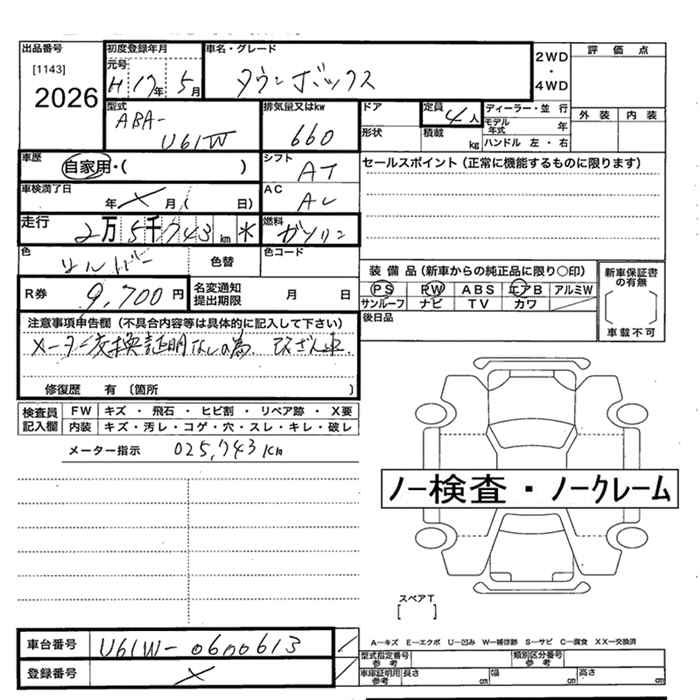 出品番号 初度登録年月 車名・グレード 2WD・4WD 評価点
[1143] 元号 H17年5月 タウンボックス
2026 外装 内装
型式 排気量又はkw ドア 定員 4人 ディーラー・並行
ABA-U61W 660 形状 積載 kg モデル年式 年
ハンドル 左・右
車歴 自家用・( ) シフト AT セールスポイント (正常に機能するものに限ります)
車検満了日 年 × 月 ( 日) AC AC
走行 2万5千743km * 燃料 ガソリン
色 シルバー 色替 色コード
装備品 (新車からの純正品に限り○印) 新車保証書の有無
R券 9,700円 名変通知提出期限 月 日 PS PW ABS エアB アルミW
サンルーフ ナビ TV カワ
車載不可
注意事項申告欄 (不具合内容等は具体的に記入して下さい) 後日品
メーター交換証明なしの為、改ざん車。
修復歴 有 (箇所 )
検査員記入欄 FW キズ・飛石・ヒビ割・リペア跡・X要
内装 キズ・汚レ・コゲ・穴・スレ・キレ・破レ
メーター指示 025,743km
ノー検査・ノークレーム
スペアT
[ ]
車台番号 U61W-0600613
A-キズ E-エクボ U-凹み W-補修跡 S-サビ C-腐食 XX-交換済
型式指定番号 参考 類別区分番号 参考
登録番号 × 車庫証明用 参考 長さ cm 幅 cm 高さ cm